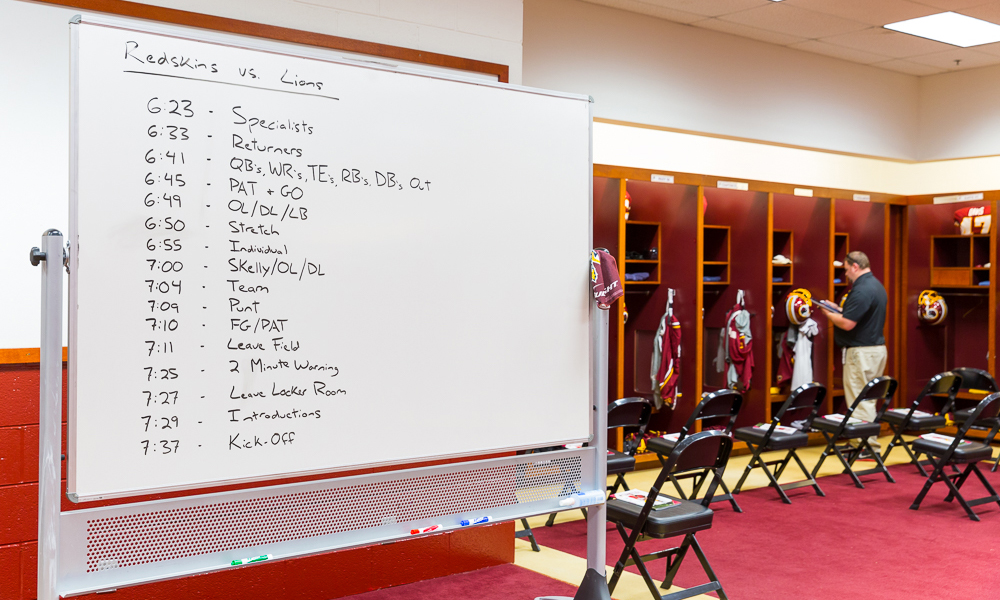 Redskins vs. Lions
6:23 - Specialists
6:33 - Returners
6:41 - QB's, WR's, TE's, RB's, DB's Out
6:45 - PAT + GO
6:49 - OL/DL/LB
6:50 - Stretch
6:55 - Individual
7:00 - Skelly/OL/DL
7:04 - Team
7:09 - Punt
7:10 - FG/PAT
7:11 - Leave Field
7:25 - 2 Minute Warning
7:27 - Leave Locker Room
7:29 - Introductions
7:37 - Kick-Off